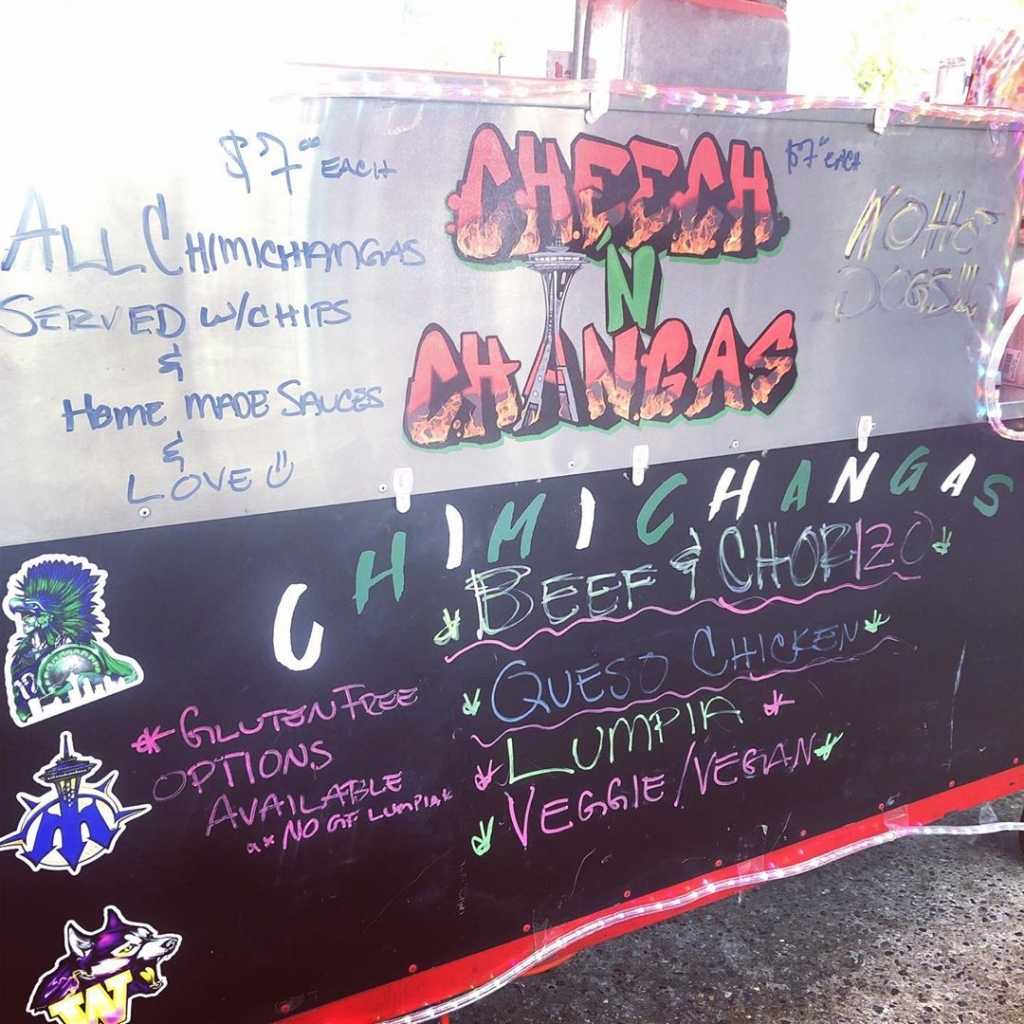 $7 EACH
ALL CHIMICHANGAS
SERVED W/CHIPS
&
HOME MADE SAUCES
&
LOVE
CHEECH
'N
CHANGAS
$7 EACH
NO HOT
DOGS!!!
CHIMICHANGAS
BEEF & CHORIZO
QUESO CHICKEN
LUMPIA
VEGGIE/VEGAN
* GLUTEN FREE
OPTIONS
AVAILABLE
** NO GF LUMPIA*
12
W